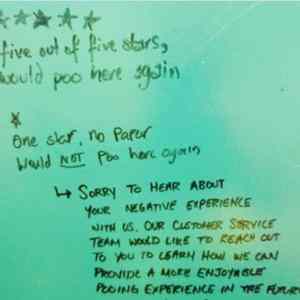 ★★★★★
five out of five stars,
would poo here again
★
One star, no Paper
Would NOT Poo here again
↳ SORRY TO HEAR ABOUT
YOUR NEGATIVE EXPERIENCE
WITH US. OUR CUSTOMER SERVICE
TEAM WOULD LIKE TO REACH OUT
TO YOU TO LEARN HOW WE CAN
PROVIDE A MORE ENJOYABLE
POOING EXPERIENCE IN THE FUTURE